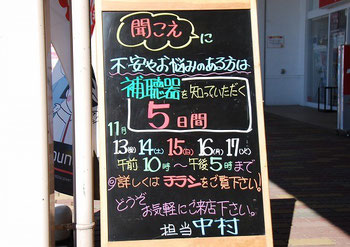 聞こえに
不安やお悩みのある方は
補聴器を知っていただく
5日間
11月
13(金) 14(土) 15(日) 16(月) 17(火)
午前10時〜午後5時まで
◎詳しくはチラシをご覧下さい!
どうぞ
お気軽にご来店下さい。
担当 中村